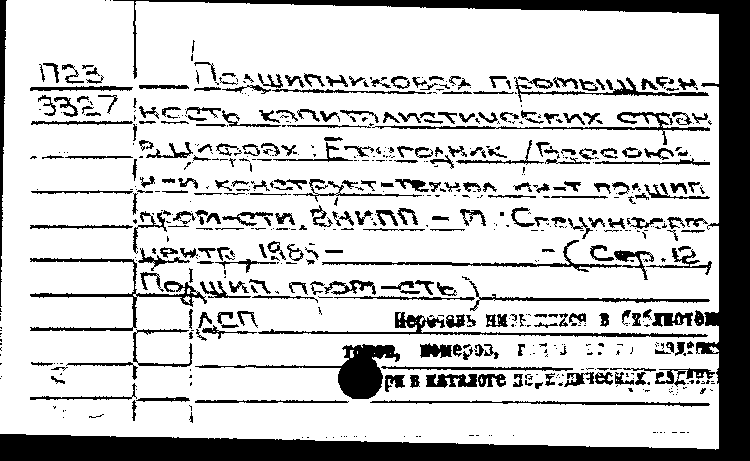 П23 Подшипниковая промышлен-
3327 ность капиталистических стран
в цифрах: Ежегодник / Всесоюз.
н-и. конструкт-технол ин-т подшип
пром-сти. ВНИПП – М.: Специнформ-
центр, 1985– –(Сер. 12,
Подшип. пром-сть)
ДСП Перечень имеющихся в библиотеке
томов, номеров,
в каталоге периодических изданий